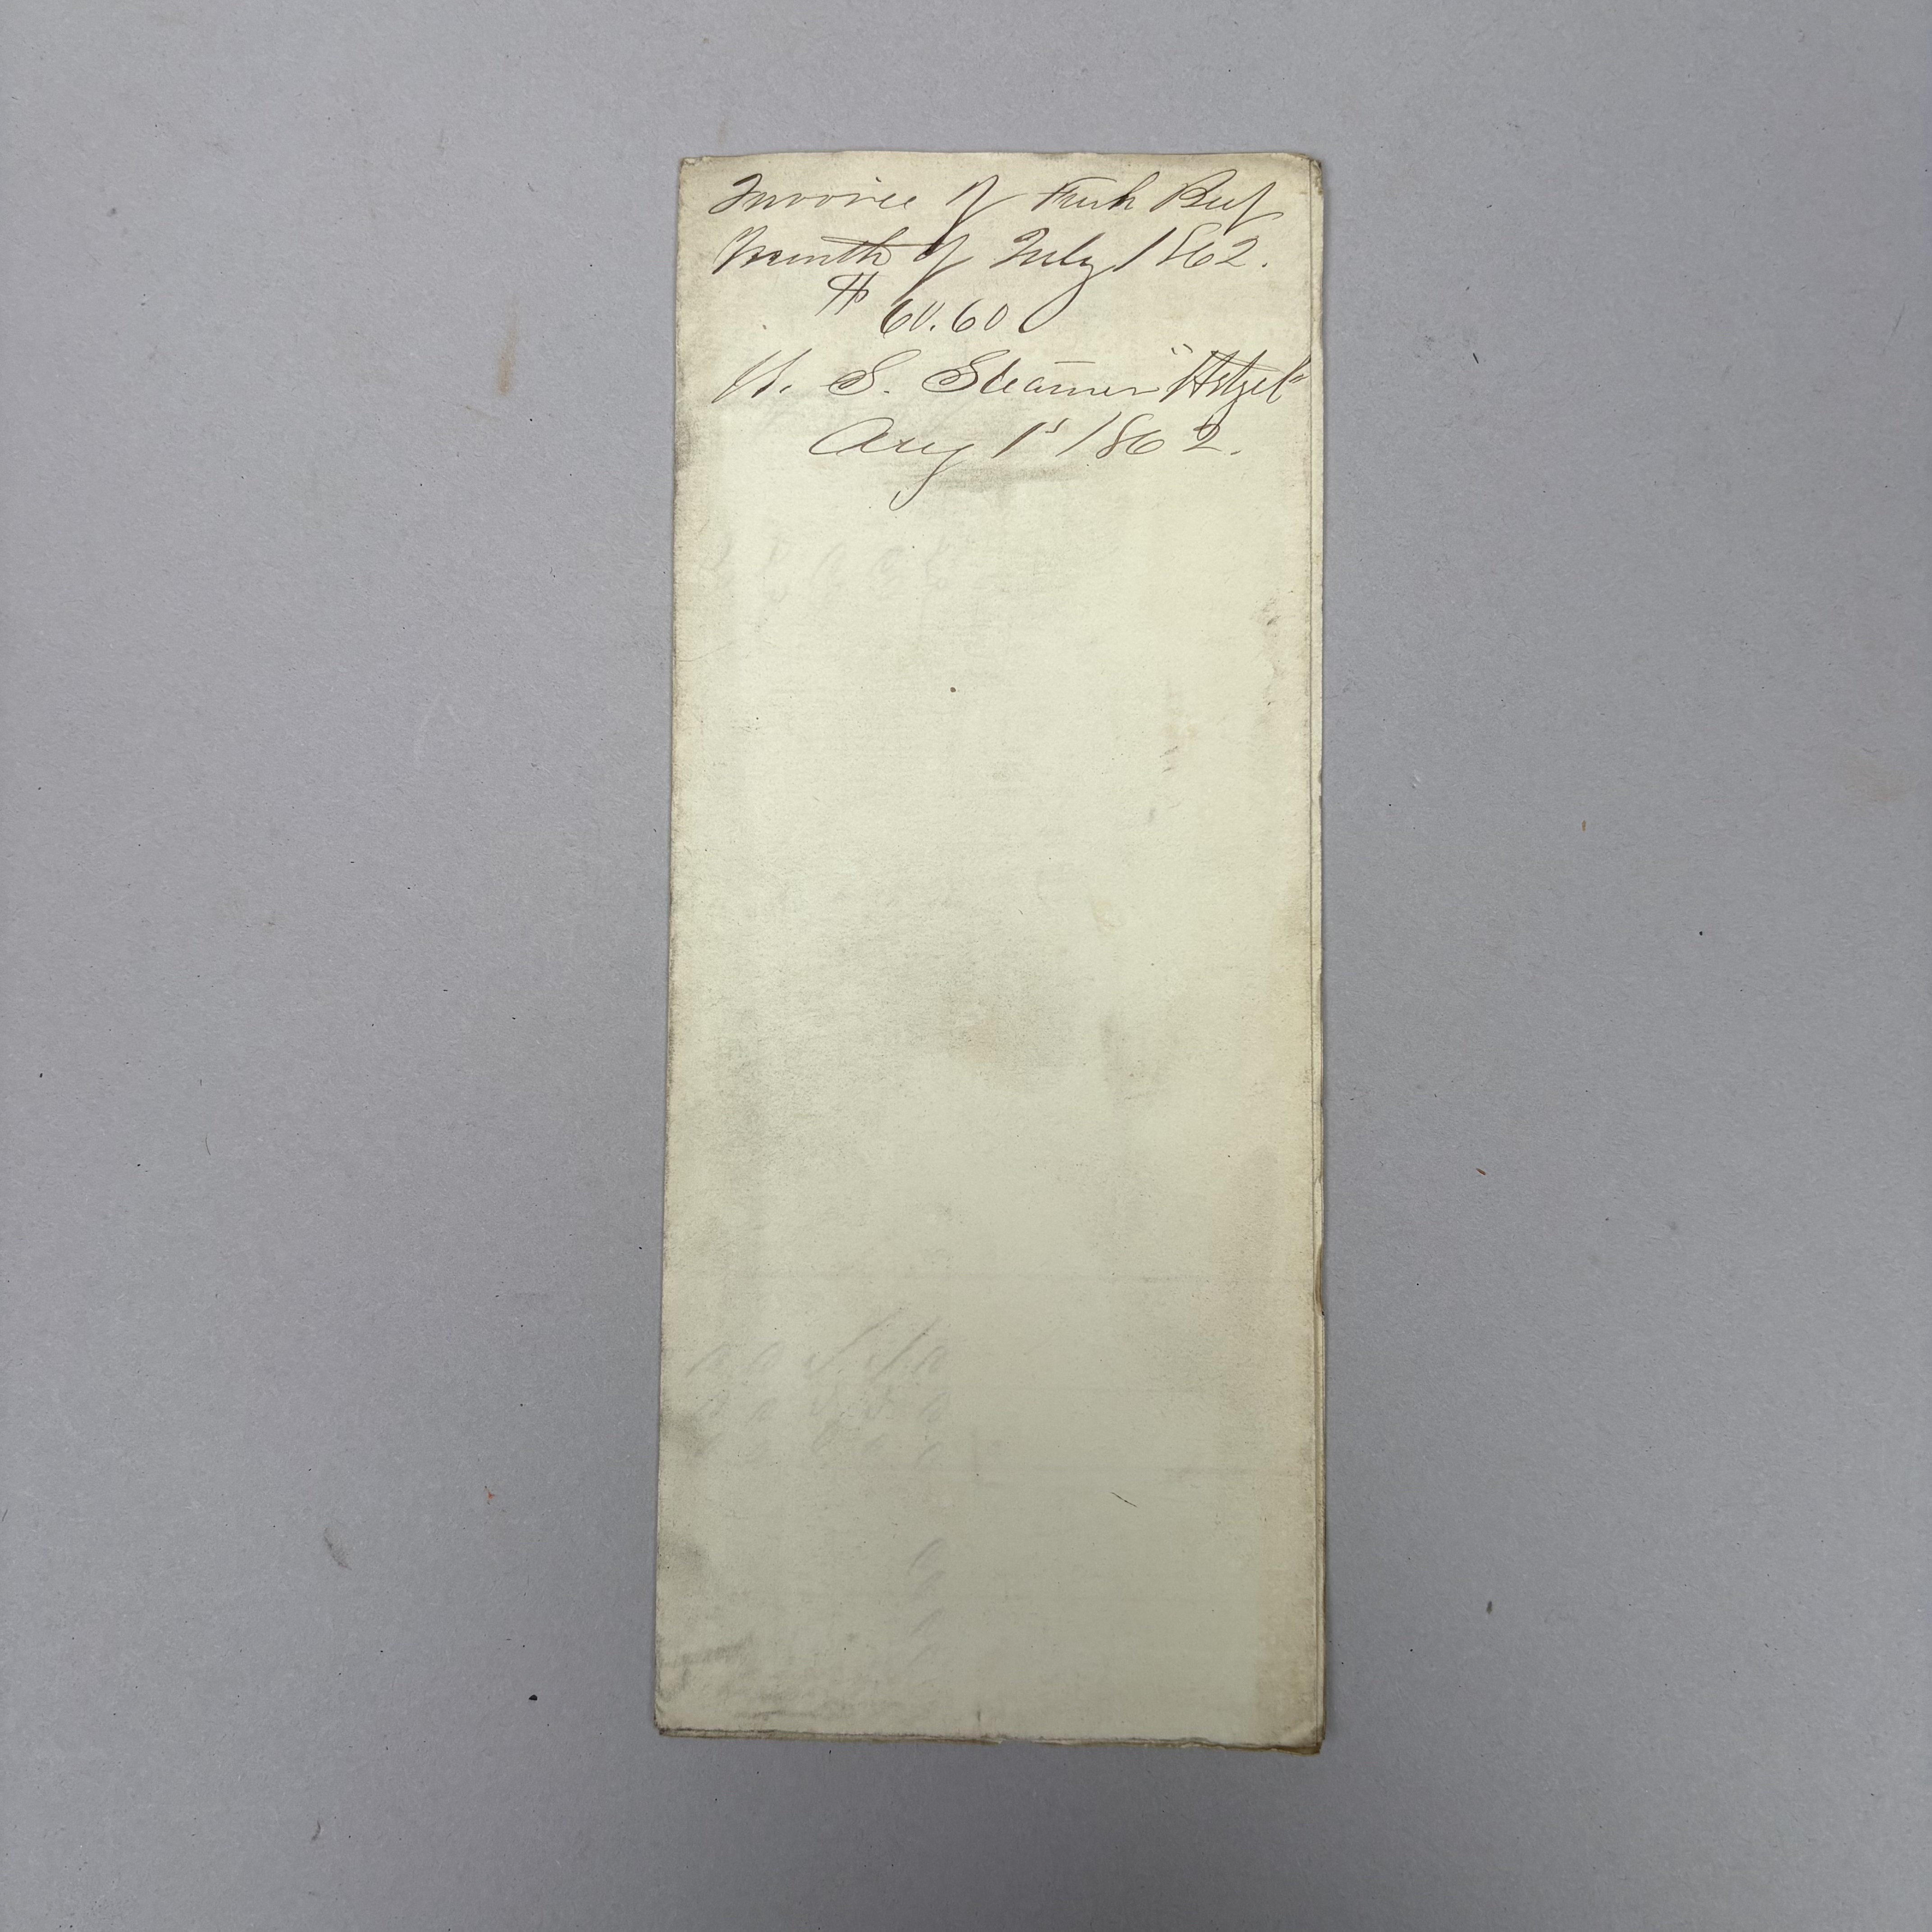 Invoice of Fresh Beef
Month of July 1862.
$ 60.60
U. S. Steamer "Hetzel"
Aug 1st 1862.